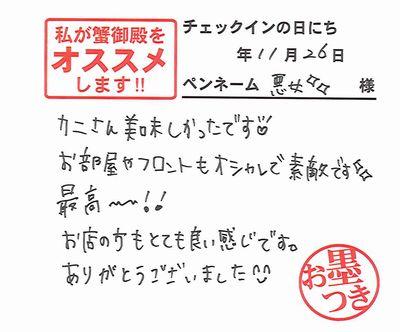 私が蟹御殿を
オススメ
します!!
チェックインの日にち
年11月26日
ペンネーム 悪女☆☆ 様
カニさん美味しかったです♡
お部屋やフロントもオシャレで素敵です☆☆
最高〜〜!!
お店の方もとても良い感じです。
ありがとうございました
お墨つき